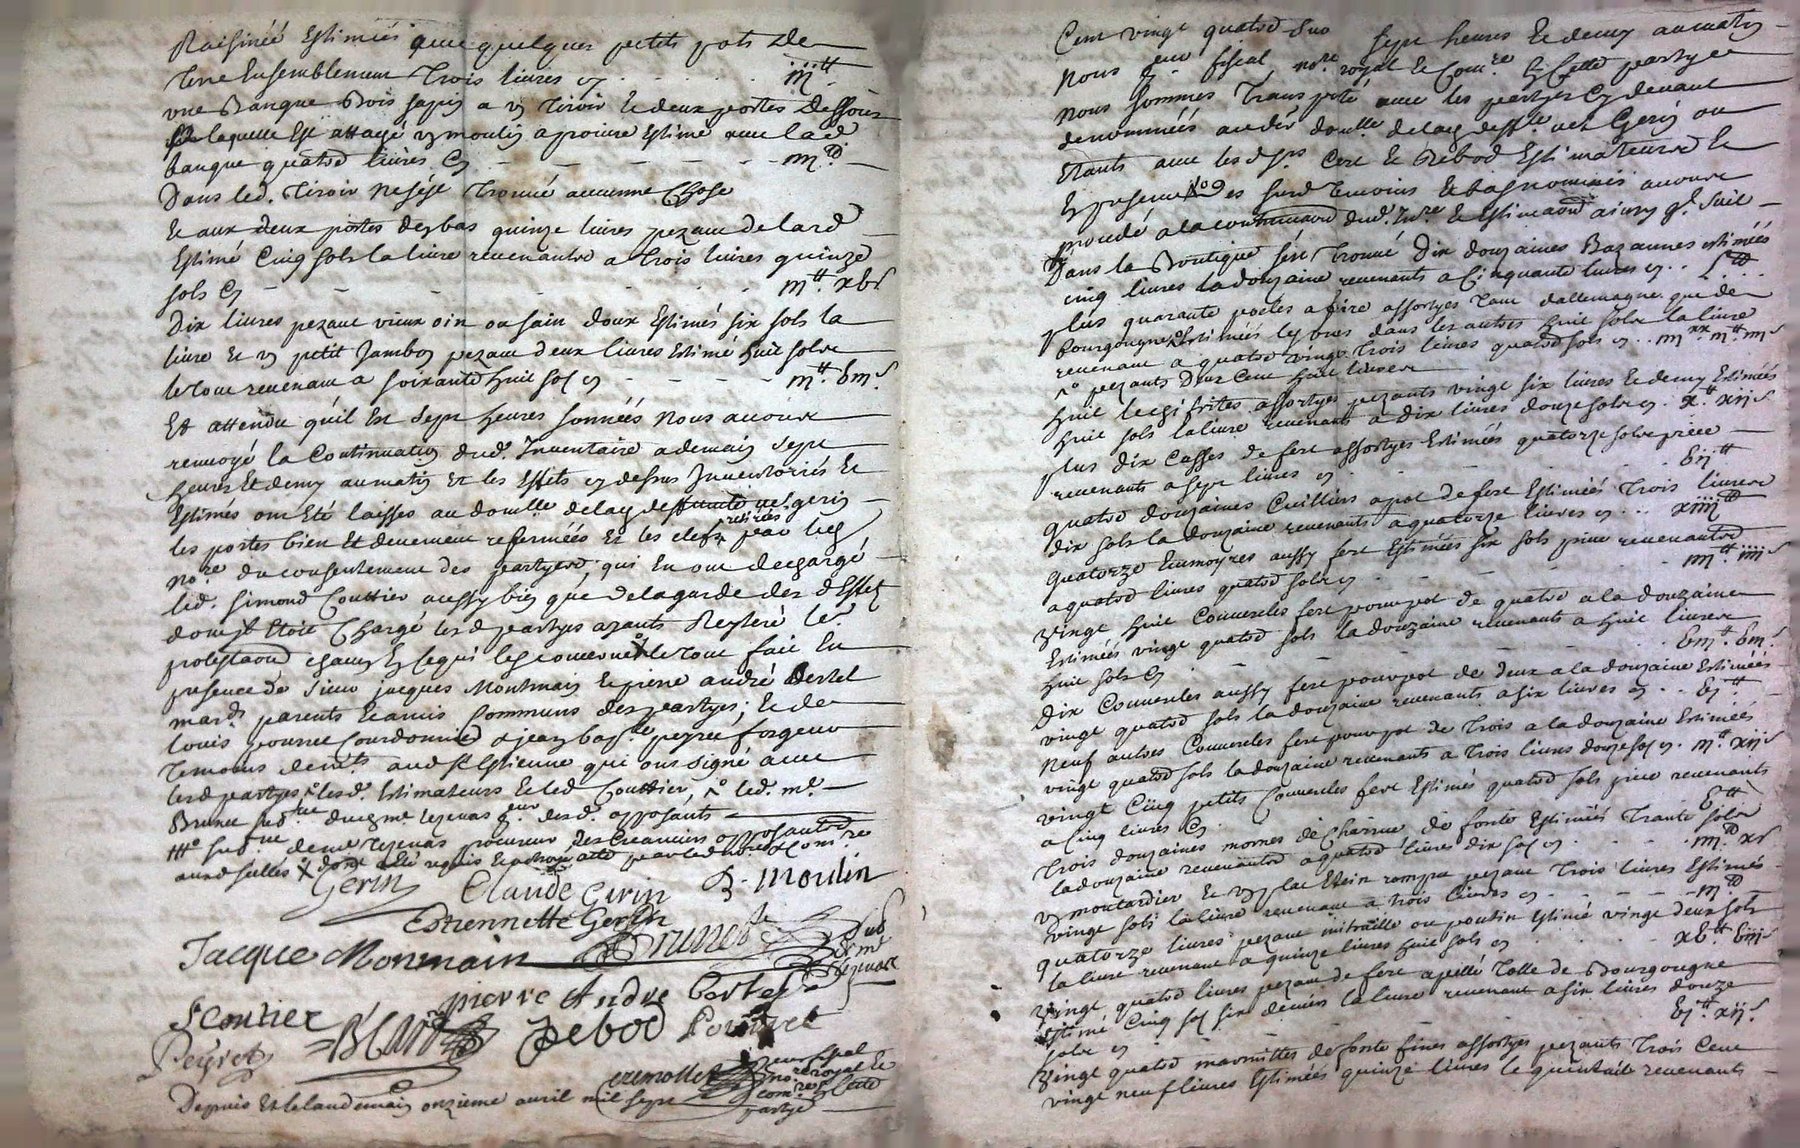 Raisinée Estimés avec quelques petits pots de
Terre Ensemblement Trois livres cy iii tt
une Banque Bois sapin a un Tiroir Et deux portes Dessous
a laquelle Est attagé un moulin a poivre Estimé avec lad.
banque quatre livres Cy
Dans led. Tiroir ne s'est Trouvé aucune Chose
Et aux deux portes du bas quinze livres pezant de lard
Estimé Cinq sols la livre revenantes a Trois livres quinze
sols Cy
Dix livres pezant vieux oin ou sain doux Estimés six sols la
livre Et un petit Jambon pezant deux livres Estimé huit sols
le Tout revenant a soixante huit sols cy
Et attendu qu'il Est sept heures sonnées Nous avons
renvoyé la Continuation dud. Inventaire a demain sept
heures Et demy au matin Et les Effets cy dessus Inventorriés Et
Estimés ont Eté laissés au domille de lad. deffunte Gerin
les portes bien Et deuement refermées Et les clefs retirées par led.
no.re du consentement des partyes qui En ont dechargé
led. simond Couttier aussy bien que de la garde des Effets
dont il Etoit Chargé lesd partyes ayants Reyteré les
protestaons chacun En ce qui les concerne le Tout fait En
presence de sieur jacques Montmain Et pierre andré Bertet
mard. parents Et amis Communs des partyes; Et de
louis pourret Courdonnier & jean bap.te peyret forgeur
Temoins demts. aud St Estienne qui ont signé avec
lesd partyes lesd. Estimateurs Et led Couttier, led. me.
Brunet sud.
Gerin Claude Gerin B. Moulin
Estiennette Gerin
Jacque Monmain Brunet
pierre Andre Bertet
S Coutier Rebod Pourret
Peyret
Depuis Et le landemain onzieme avril mil sept
Cent vingt quatre Sur Sept heures Et demy au matin
Nous fiscal no.re royal Et Com.re En cette partye
nous sommes Transporté avec les partyes Cy devant
denommées audit domille de lad. deff.te Gerin ou
Etants avec lesd. Et Rebod Estimateurs Et
En presence des surd Temoins Et bas nommés avons
procedé a la continuaon dud. Inre Et Estimaon ainsy q.l suit
Dans la Boutique s'est Trouvé Dix douzaines Bazannes estimées
cinq livres la douzaine revenants a Cinquante livres cy L tt
plus quarante poeles a frire assortyes Tant dallemagne que de
bourgougne Estimées les unes dans les autres huit sols la livre
revenant a quatre vingt Trois livres quatre sols cy
pezants Deux Cent huit livres
huit lechefrites assortyes pezants vingt six livres Et demy Estimées
huit sols la livre revenants a Dix livres douze sols cy x tt xii s
plus dix Casses de fert assortyes Estimées quatorze sols piece
revenants a sept livres cy
quatre douzaines Cuilliers a pot de fert Estimées Trois livres
dix sols la douzaine revenants a quatorze livres cy xiiii tt
quatorze Ecumoyres aussy fert Estimées six sols piece revenantes
a quatre livres quatre sols cy
vingt huit Couvercles fert pour pot de quatre a la douzaine
Estimées vingt quatre sols la douzaine revenants a huit livres
huit sols Cy
Dix Couvercles aussy fert pour pot de Deux a la douzaine Estimées
vingt quatre sols la douzaine revenants a six livres cy
Neuf autres Couvercles fert pour pot de Trois a la douzaine Estimées
vingt quatre sols la douzaine revenants a Trois livres douze sols cy
vingt Cinq petits Couvercles fert Estimés quatre sols piece revenants
a Cinq livres Cy
Trois douzaines de fonte Estimées Trante sols
la douzaine revenantes a quatre livres dix sols cy
un moutardier Et un plat Etein rompu pezant Trois livres Estimés
vingt sols la livre revenant a Trois livres cy
quatorze livres pezant mitraille ou poutin Estimé vingt deux sols
la livre revenant a quinze livres huit sols cy
vingt quatre livres pezant de fert a pelle Tolle de Bourgougne
Estimé Cinq sols six deniers la livre revenant a six livres douze
sols cy
vingt quatre marmittes de fonte fines assortyes pezants Trois Cent
vingt neuf livres Estimées quinze livres le quintail revenants